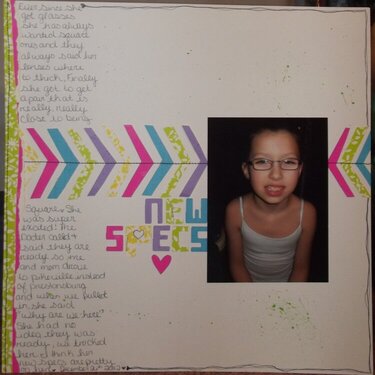 Ever since she
got glasses
she has always
wanted square
ones and they
always said her
lenses where
to thick. Finally
she got to get
a pair that is
really really
close to being
NEW
SPECS
Square. She
was super
excited! The
Doctor called &
said they are
ready so me
and mom drove
to pikeville instead
of prestonsburg
and when we pulled
in she said
"why are we here"
She had no
idea they was
ready, we tricked
her. I think her
new specs are pretty
on her! 2012